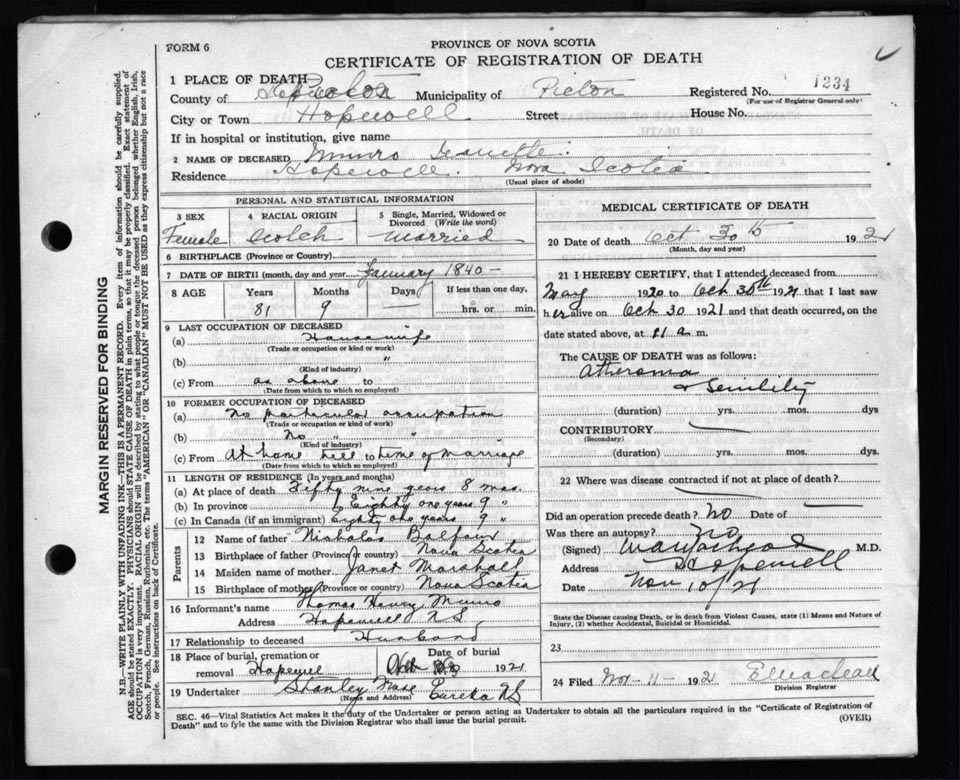 FORM 6
PROVINCE OF NOVA SCOTIA
CERTIFICATE OF REGISTRATION OF DEATH
1 PLACE OF DEATH
County of Pictou Municipality of Pictou Registered No. 1234
(For use of Registrar General only)
City or Town Hopewell Street House No.
If in hospital or institution, give name
2 NAME OF DECEASED Munro Jeanette.
Residence Hopewell. Nova Scotia
(Usual place of abode)
PERSONAL AND STATISTICAL INFORMATION
3 SEX 4 RACIAL ORIGIN 5 Single, Married, Widowed or Divorced (Write the word)
Female Scotch Married
6 BIRTHPLACE (Province or Country)
7 DATE OF BIRTH (month, day and year) January 1840 -
8 AGE Years Months Days If less than one day,
81 9 hrs. or min.
9 LAST OCCUPATION OF DECEASED
(a) Housewife
(Trade or occupation or kind or work)
(b) "
(Kind of industry)
(c) From as above to
(Date from which to which so employed)
10 FORMER OCCUPATION OF DECEASED
(a) No particular occupation
(Trade or occupation or kind of work)
(b) No " "
(Kind of industry)
(c) From At home till to time of marriage
(Date from which to which so employed)
11 LENGTH OF RESIDENCE (In years and months)
(a) At place of death Fifty nine years 8 mos.
(b) In province Eighty one years 9 "
(c) In Canada (if an immigrant) Eighty one years 9 "
Parents
12 Name of father Nicholas Balfour
13 Birthplace of father (Province or country) Nova Scotia
14 Maiden name of mother Janet Marshall
15 Birthplace of mother (Province or country) Nova Scotia
16 Informant's name Thomas Henry Munro
Address Hopewell N.S.
17 Relationship to deceased Husband
18 Place of burial, cremation or removal Hopewell Date of burial 1921
19 Undertaker Stanley Eureka N.S.
(Name and Address)
MEDICAL CERTIFICATE OF DEATH
20 Date of death Oct 30th 1921
(Month, day and year)
21 I HEREBY CERTIFY, that I attended deceased from
May 1920 to Oct 30th 1921 that I last saw
her alive on Oct 30 1921 and that death occurred, on the
date stated above, at 11 a m.
The CAUSE OF DEATH was as follows:
Atheroma
& Senility
(duration) yrs. mos. dys
CONTRIBUTORY
(Secondary)
(duration) yrs. mos. dys.
22 Where was disease contracted if not at place of death?
Did an operation precede death? No Date of
Was there an autopsy? No
(Signed) M.D.
Address Hopewell
Date Nov 10/21
State the Disease causing Death, or in death from Violent Causes, state (1) Means and Nature of
Injury, (2) whether Accidental, Suicidal or Homicidal.
23
24 Filed Nov - 11 - 1921
Division Registrar
SEC. 46—Vital Statistics Act makes it the duty of the Undertaker or person acting as Undertaker to obtain all the particulars required in the "Certificate of Registration of
Death" and to fyle the same with the Division Registrar who shall issue the burial permit.
(OVER)
MARGIN RESERVED FOR BINDING
N.B.—WRITE PLAINLY WITH UNFADING INK—THIS IS A PERMANENT RECORD. Every item of information should be carefully supplied.
AGE should be stated EXACTLY. PHYSICIANS should STATE CAUSE OF DEATH in plain terms, so that it may be properly classified. Exact statement of
OCCUPATION is very important. RACIAL ORIGIN will be described by stating to what people or tongue the deceased person belonged whether English, Irish,
Scotch, French, German, Russian, Ruthenian, etc. The terms "AMERICAN" or "CANADIAN" MUST NOT BE USED as they express citizenship but not a race
or people. See instructions on back of Certificate.